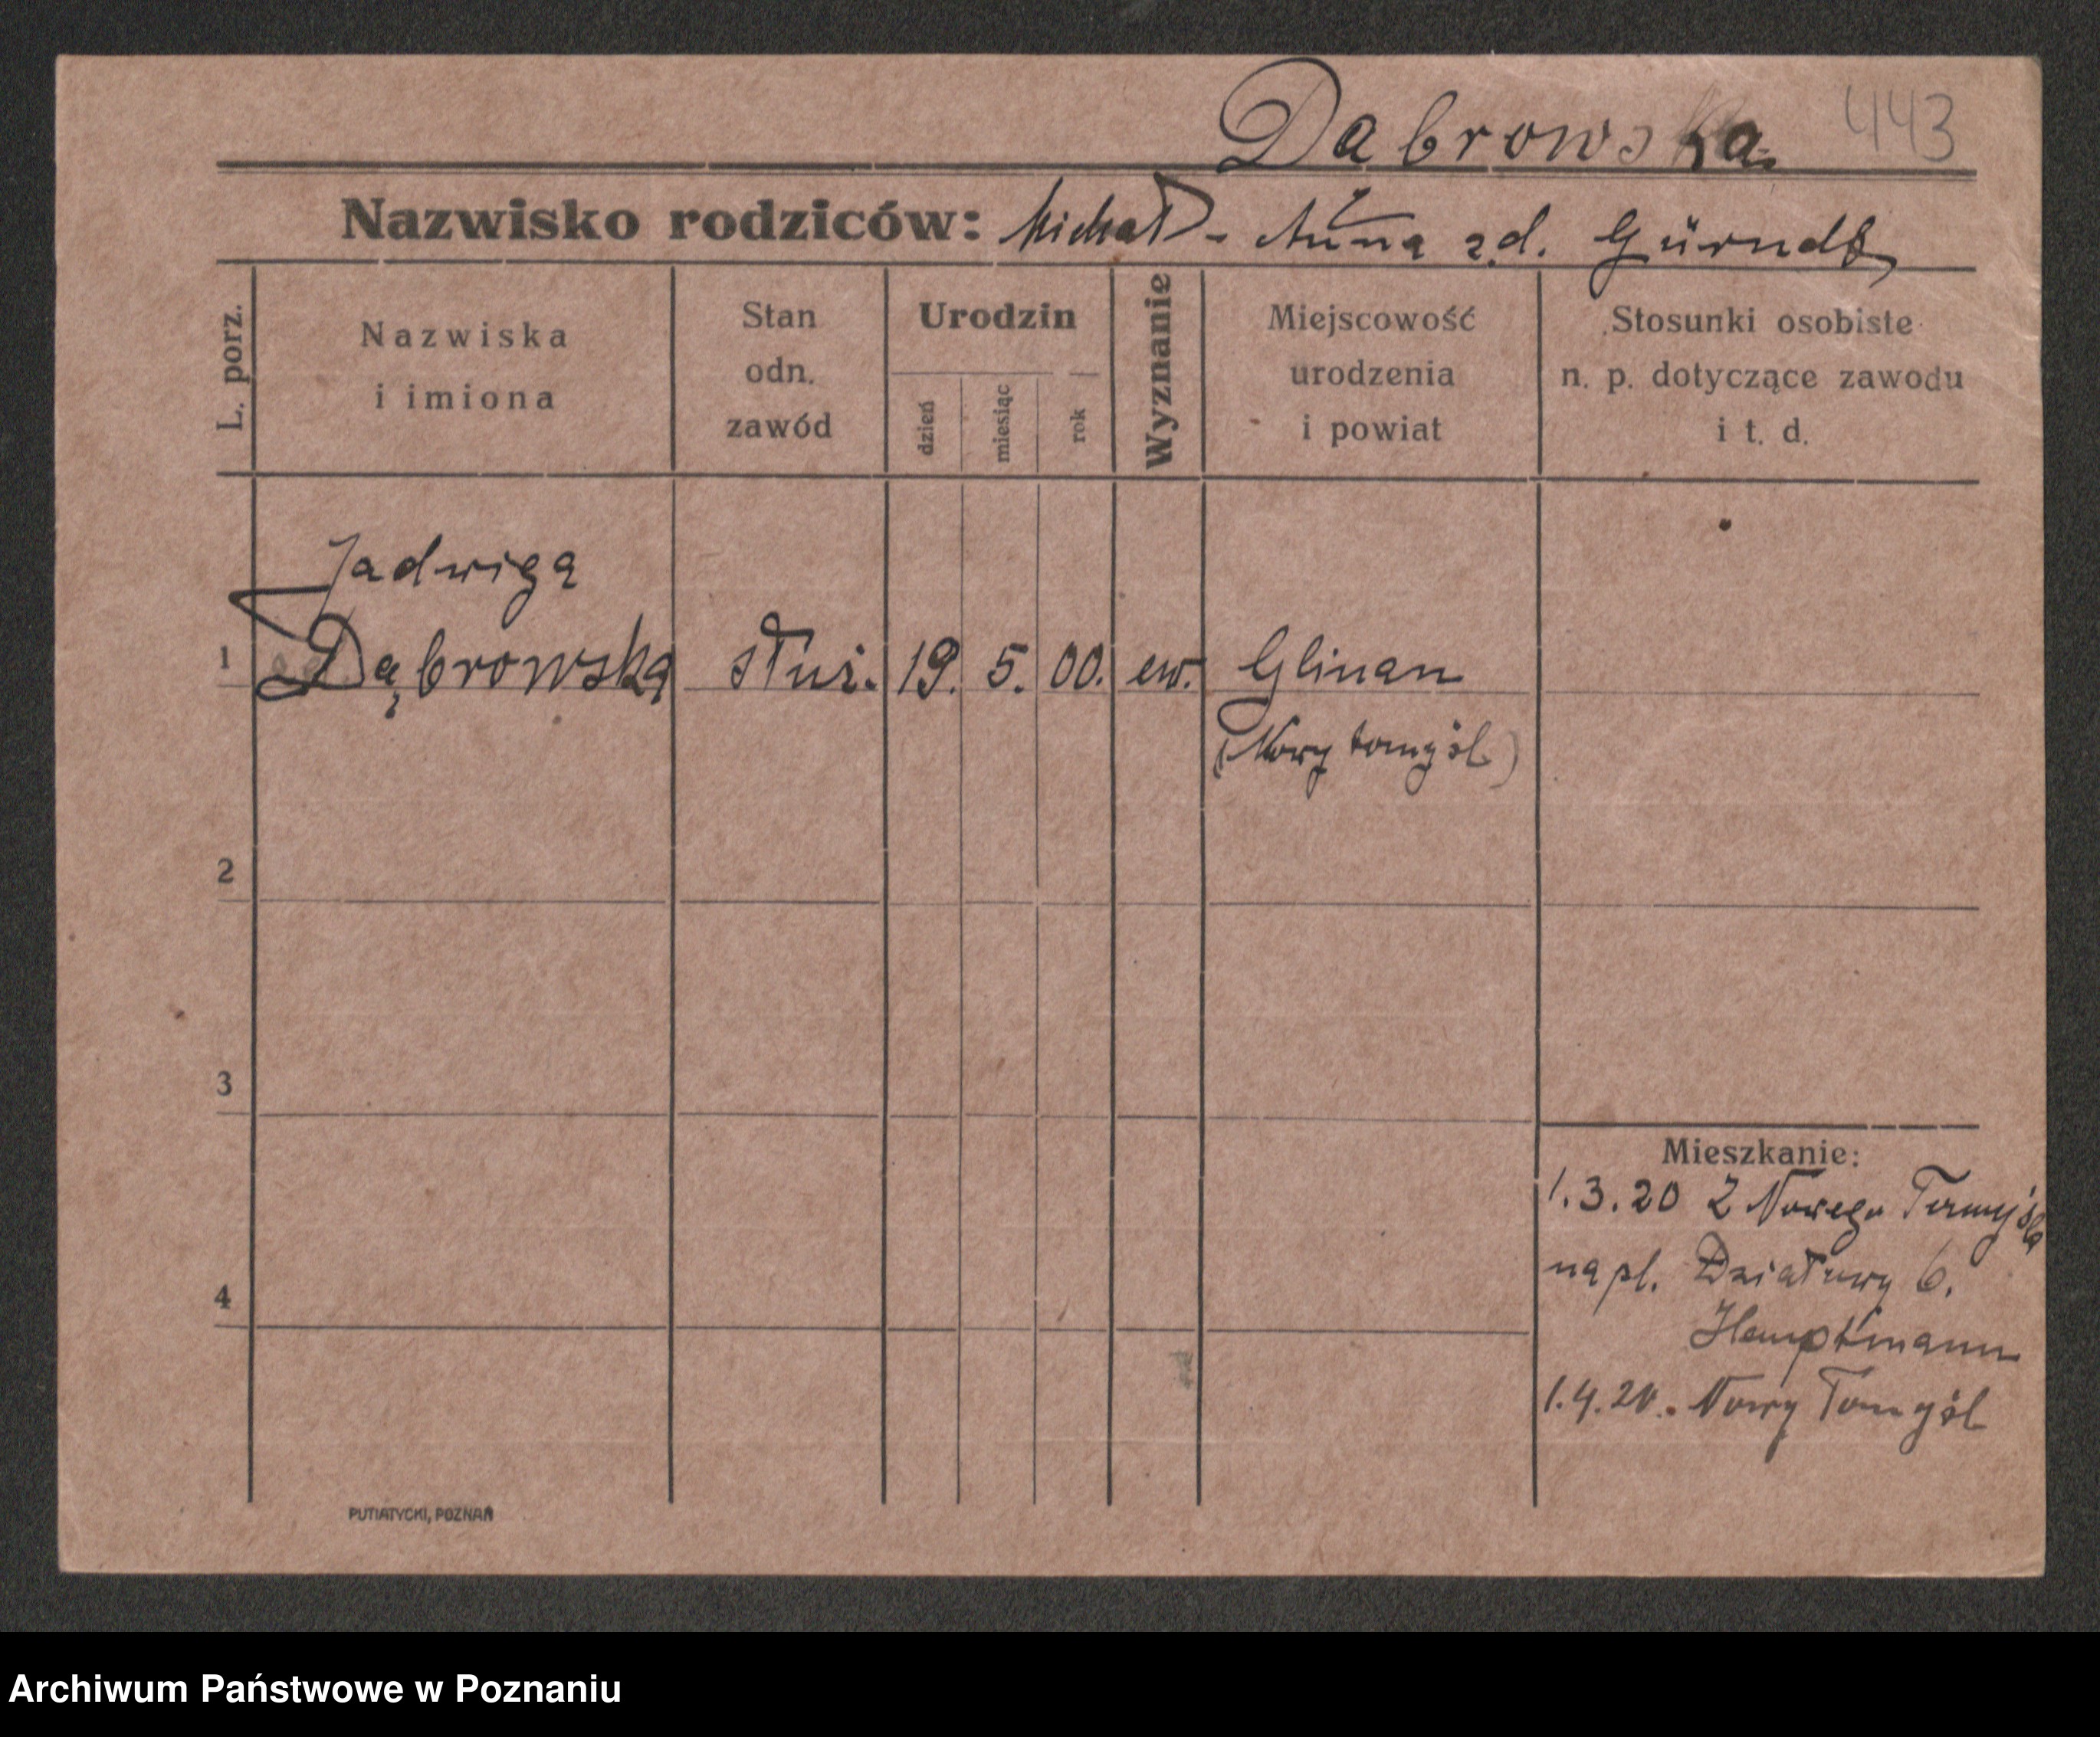 Dabrowska 443
Nazwisko rodziców: Michał - Anna z d. Gürndt
L. porz.
Nazwiska
i imiona
Stan
odn.
zawód
Urodzin
dzień
miesiąc
rok
Wyznanie
Miejscowość
urodzenia
i powiat
Stosunki osobiste
n. p. dotyczące zawodu
i t. d.
Jadwiga
1 Dąbrowska służ. 19. 5. 00. ew. Glinau
(Nowy tomyśl)
2
3
4
Mieszkanie:
1.3.20 z Nowego Tomyśla
na pl. Działowy 6.
Hauptmann
1.4.20. Nowy Tomyśl
PUTIATYCKI, POZNAŃ
Archiwum Państwowe w Poznaniu